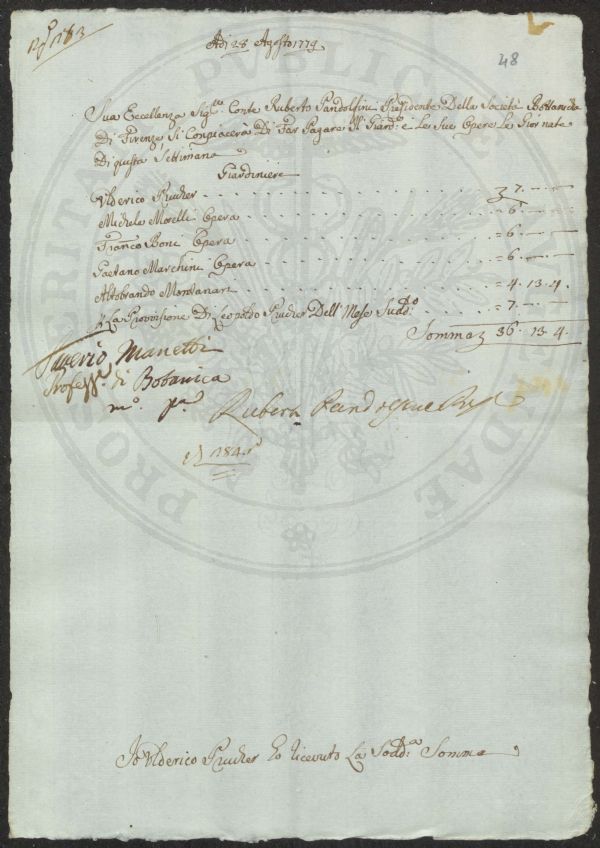 48
Adi 28 Agosto 1779
Sua Eccellenza Sigre. Conte Ruberto Pandolfini Presidente Della Società Bottanicha
Di Firenze Si Conpiacerà Di Far Pagare Al Giardre. e Le Sue Opere Le Giornate
Di questa Settimana
Giardiniere
Ulderico Prucker . . . . . 7. — —
Michele Morelli Opera . . . . . = 6 — —
Franco Boni Opera . . . . . = 6. — —
Gaetano Marchini Opera . . . . . = 6. — —
Altobrando Montanari . . . . . = 4. 13. 4.
La Provvisione Di Leopoldo Prucker Dell' Mese Suddo. . . = 7. — —
Somma 36. 13. 4
Saverio Manetti
Professe. di Botanica
mo. pa.
Ruberto Pandolfini
184
PROSPERITATI PUBLICAE AUGENDAE
Io Ulderico Prucker Ho Ricevuto La Sodda. Somma